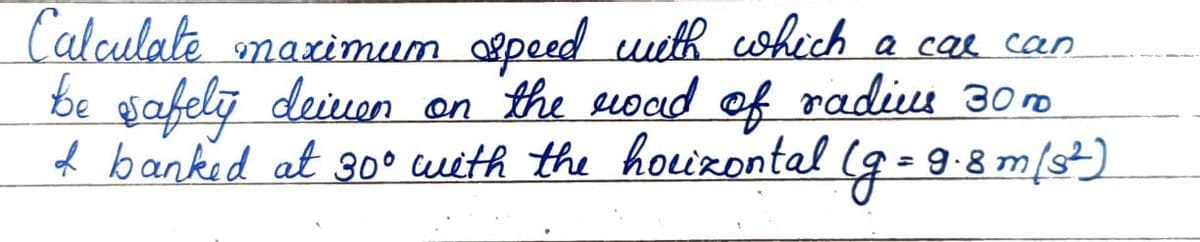 Calculate maximum speed with which a car can
be safely driven on the road of radius 30 m
& banked at 30° with the horizontal (g = 9.8 m/s²)